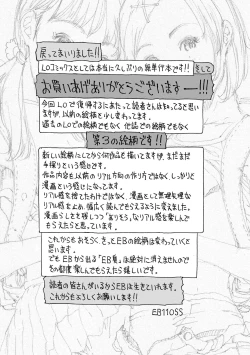 戻ってまいりました!!
LOコミックスとしては本当に久しぶりの単行本です!!
そして
お買いあげありがとうございますー!!!
今回LOで復帰するにあたって読者さんは知ってると思い
ますが、以前の絵柄と少し変わってます。
過去のLOでの絵柄でもなく 他誌での絵柄でもなく
第3の絵柄です!!
新しい絵柄にしてから何作品も描いてますが、まだまだ
手探りという感じです。
作品内容も以前のリアル方向の作り方ではなく しっかりと
漫画という感じになってます。
リアル感を捨てたわけではなく、漫画として無理矢理な
リアル感をよみ、幅広く読んでもらえるように変えました。
漫画らしさを残しつつ「ありそう」なリアル感を楽しんで
もらえたらと思っています。
これからもおそらくきっとEBの絵柄は変わっていくと
思います。
でも EBから出る「EB臭」は絶対に消えませんので
その都度 楽しんでもらえたら嬉しいです
読者の皆さんがいるからEBは生きていれます。
これからもよろしくお願いします!!
EB110SS